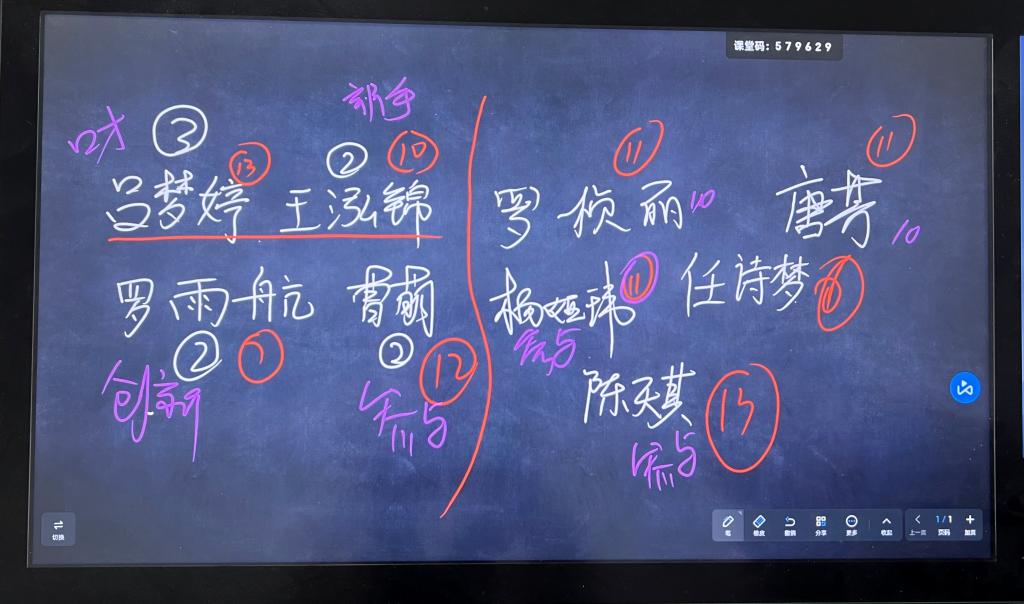 课堂码：579629
口才 ③ 新手
⑬ ② ⑩
吕梦婷 王泓锦
罗雨航 曹萌
② ⑦ ② ⑫
创新 参与
⑪ ⑪
罗桢丽 10 唐芳 10
杨娅玮 ⑪ 任诗梦
参与
陈天琪 ⑬
参与
切换
笔 橡皮 撤销 分享 更多 收起 上一页 1/1 页码 加页